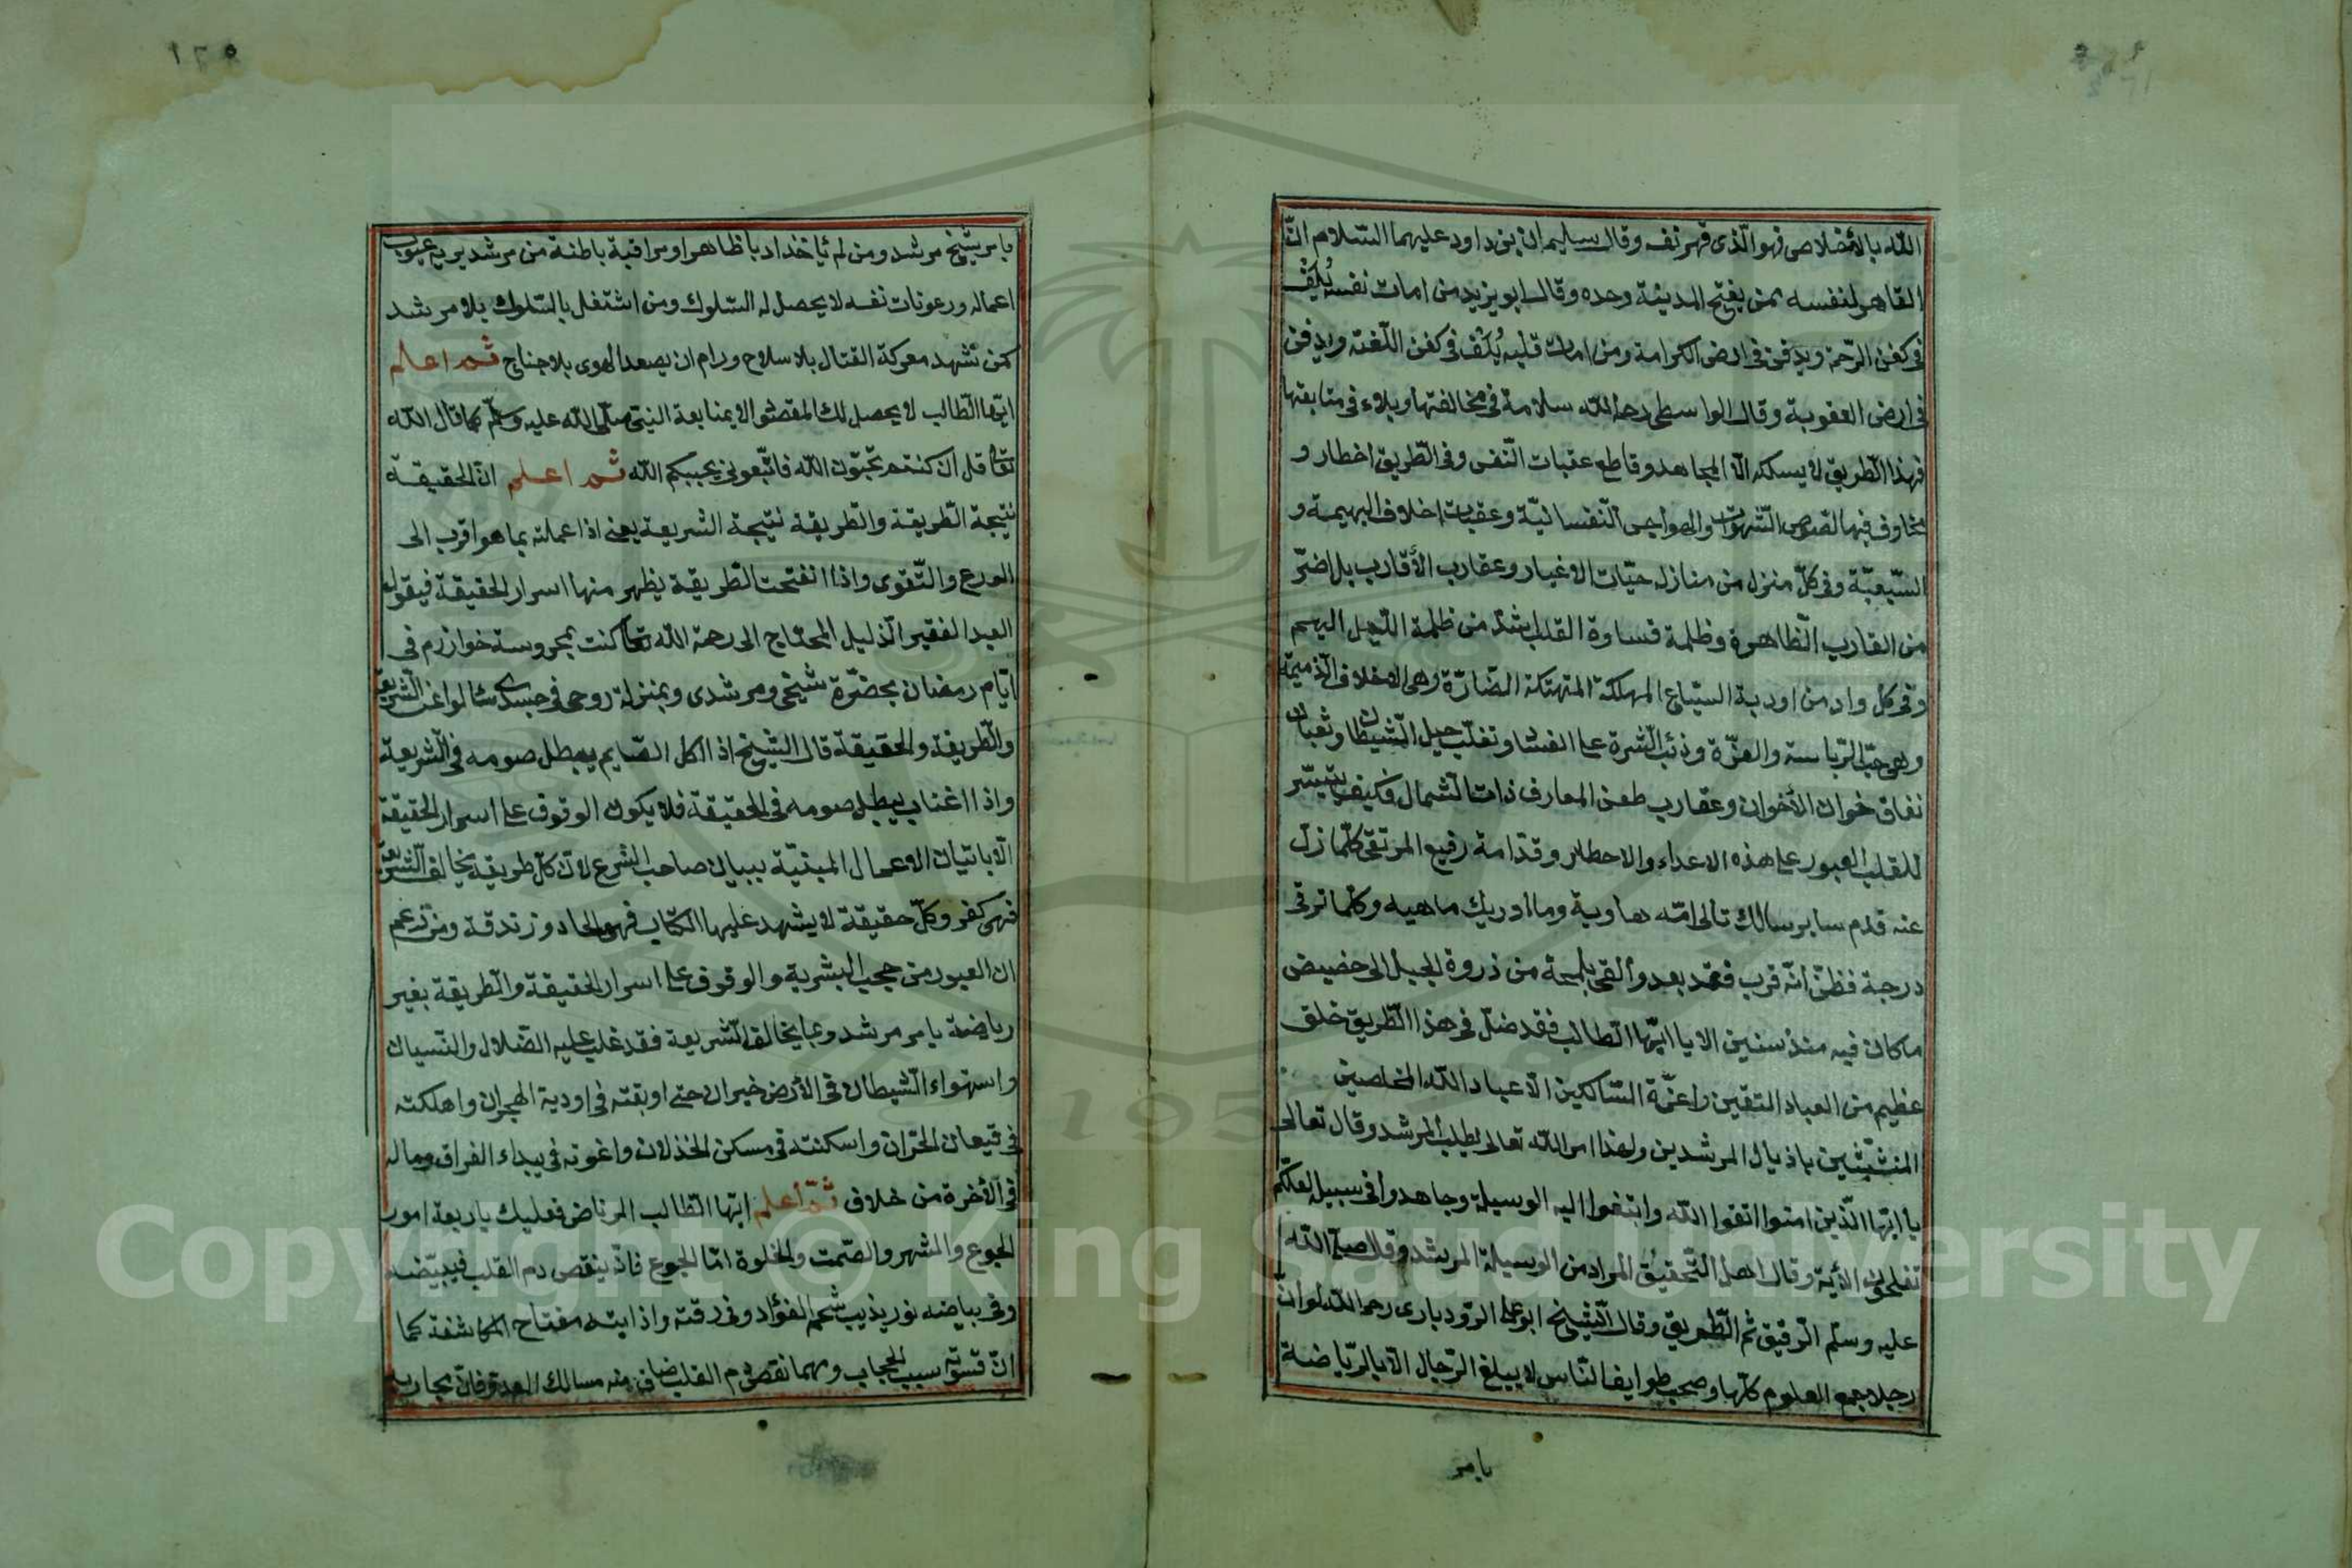 الله بالأخلاص فهو الّذى قهر نفسه وقال سليمان بن داود عليهما السّلام انّ
القاهر لنفسه كمن يفتح المدينة وحده وقال ابو يزيد من امات نفسه يُكفّ
فى كفن الرّحمة ويدفن فى ارض الكرامة ومن امات قلبه يُكفّ فى كفن اللّعنة ويدفن
فى ارض العقوبة وقال الواسطى رحمه الله سلامة فى مخالفتها وبلاء فى متابعتها
فهذا الطّريق لا يسلكه الّا المجاهد وقاطع عقبات النّفس وفى الطّريق اخطار و
مخاوف فيها لصوص الشّهوات والهواجس النّفسانيّة وعقبات اخلاف البهيمة و
السّبعيّة وفى كلّ منزل من منازله حيّات الاغيار وعقارب الأقارب بل اضرّ
من القارب الظّاهرة وظلمة قساوة القلب اشدّ من ظلمة اللّيل البهيم
وفى كل واد من اودية السّباع المهلكة المتهتكة الضّارّة وهى الاخلاق الذّميمة
وهى حبّ الرّياسة والعزّة وذئب الشّرة على الفساد وتغلّب حيل الشّيطان وثعبان
نفاق خوان الأخوان وعقارب طعن المعارف ذات الشّمال فكيف يتيسّر
للقلب العبور على هذه الاعداء والاحطار وقدّامه رفيع المرتقى كلّما زلّ
عنه قدم ساير سالك تالى امّه هاوية وما ادريك ماهيه وكلّما ترقى
درجة فظنّ انّه قرب فقد بعد وألقى بلمحة من ذروة الجبل الى حضيض
ما كان فيه منذ سنين الا يا ايّها الطّالب فقد ضلّ فى هذا الطّريق خلق
عظيم من العباد المتقين واعزّة السّالكين الّا عباد الله المخلصين
المتشبّثين باذيال المرشدين ولهذا امر الله تعالى بطلب المرشد وقال تعالى
يا ايّها الّذين امنوا اتقوا الله وابتغوا اليه الوسيلة وجاهدوا فى سبيله لعلّكم
تفلحون الأية وقال اهل التّحقيق المراد من الوسيلة المرشد وقال صلى الله
عليه وسلّم الرّفيق ثم الطّريق وقال الشّيخ ابو على الرّودبارى رحمه الله لو انّ
رجلا جمع العلوم كلّها وصحب طوايف النّاس لا يبلغ الرّجال الّا بالرّياضة
بامر
بامر شيخ مرشد ومن لم يأخذ ادبا ظاهرا ومراقبة باطنة من مرشد يريه عيوب
اعماله ورعونات نفسه لا يحصل له السّلوك ومن اشتغل بالسّلوك بلا مرشد
كمن شهد معركة القتال بلا سلاح ورام ان يصعد الهوى بلا جناح ثم اعلم
ايّها الطّالب لا يحصل لك المقصود الا بمتابعة النبىّ صلّى الله عليه وسلّم كما قال الله
تعالى قل ان كنتم تحبّون الله فاتّبعونى يحببكم الله ثم اعلم انّ الحقيقة
نتيجة الطّريقة والطّريقة نتيجة الشريعة يعنى اذا عملته بما هو اقرب الى
الورع والتّقوى واذا انفتحت الطّريقة يظهر منها اسرار الحقيقة فيقول
العبد الفقير الذّليل المحتاج الى رحمة الله تعالى كنت بمحروسة خوارزم فى
ايّام رمضان بحضرة شيخى ومرشدى وبمنزلة روحى فى جسدى سٔالوا عن الشّريعة
والطّريقة والحقيقة قال الشّيخ اذا اكل الصّايم يبطل صومه فى الشّريعة
واذا اغتاب يبطل صومه فى الحقيقة فلا يكون الوقوف على اسرار الحقيقة
الّا باتيان الاعمال المبنيّة ببيان صاحب الشرع لانّ كلّ طريقة يخالف الشّريعة
فهى كفر وكلّ حقيقة لا يشهد عليها الكتاب فهى الحاد وزندقة ومن زعم
ان العبور من حجب البشرية والوقوف على اسرار الحقيقة والطّريقة بغير
رياضة بامر مرشد وبما يخالف الشّريعة فقد غلب عليه الضّلال والنّسيان
واستهواء الشّيطان فى الأرض حيران حتى اوبقته فى اودية الهجران واهلكته
فى قيعان الحرمان واسكنته فى مسكن الخذلان واغوته فى بيداء الفراق وماله
فى الأخرة من خلاق ثمّ اعلم ايّها الطّالب المرتاض فعليك باربعة امور
الجوع والسّهر والصّمت والخلوة امّا الجوع فانّه ينقص دم القلب فيبيّضه
وفى بياضه نور يذيب شحم الفؤاد وفى رقته واذابته مفتاح المكاشفة كما
انّ قسوته سبب الحجاب ومهما نقص دم القلب ضاق منه مسالك العدوّ فانّ مجاريه
Copyright © King Saud University
195